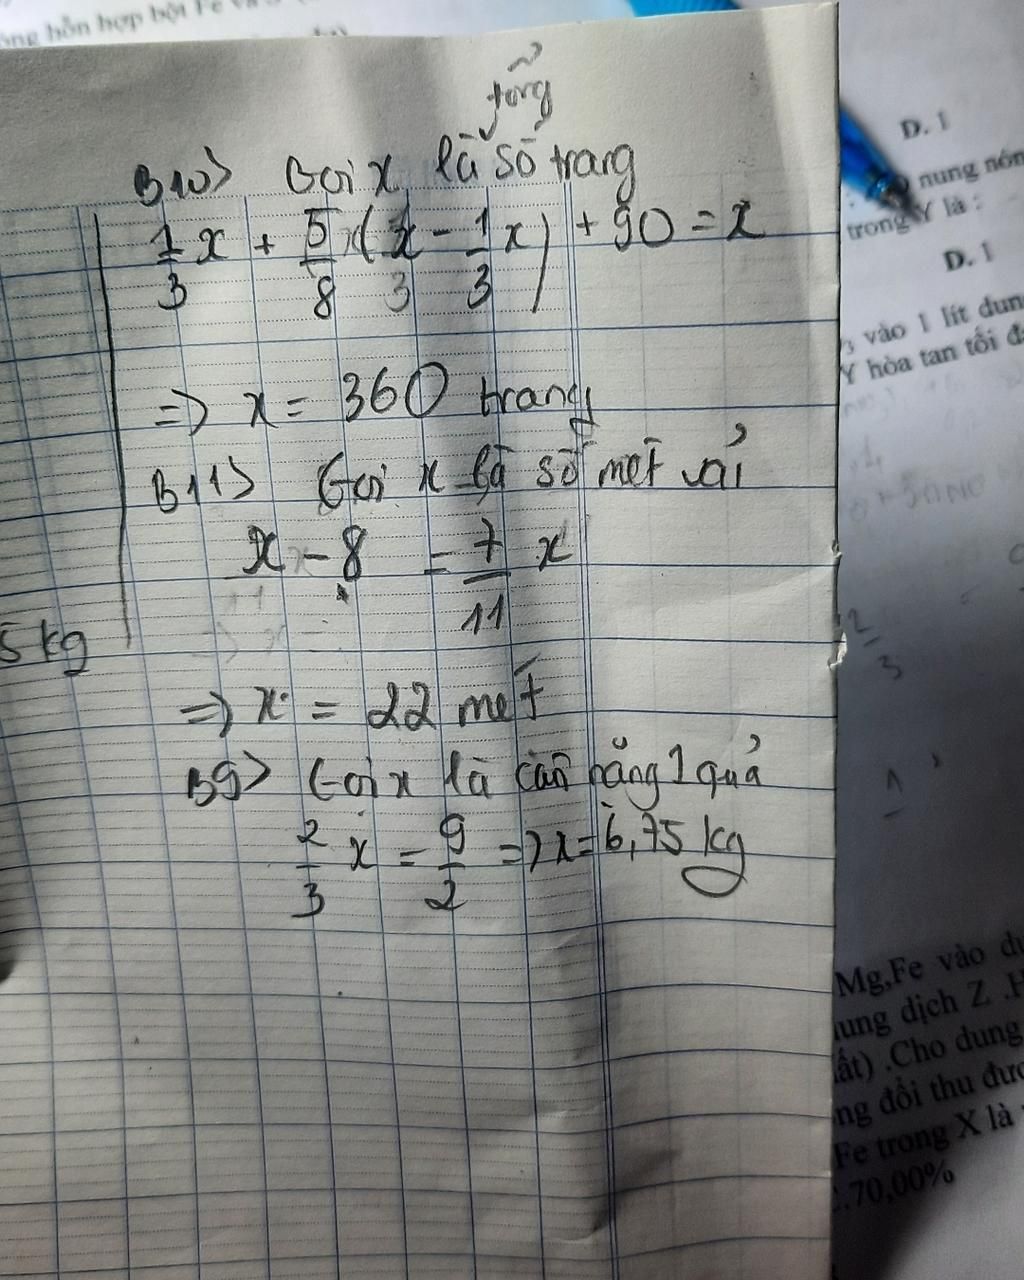 hỗn hợp bột Fe
tổng
B10> Gọi x là số trang
1/3 x + 5/8 x (x - 1/3 x) + 90 = x
=> x = 360 trang
B11> Gọi x là số mét vải
x - 8 = 7/11 x
5 kg
=> x = 22 mét
B9> Gọi x là cân nặng 1 quả
2/3 x = 9/2 => x = 6,75 kg
D. 1
nung nón
trong Y là :
D. 1
vào 1 lít dun
Y hòa tan tối đ
2/3
Mg,Fe vào d
ung dịch Z .H
ất) .Cho dung
ng đổi thu đư
Fe trong X là
.70,00%